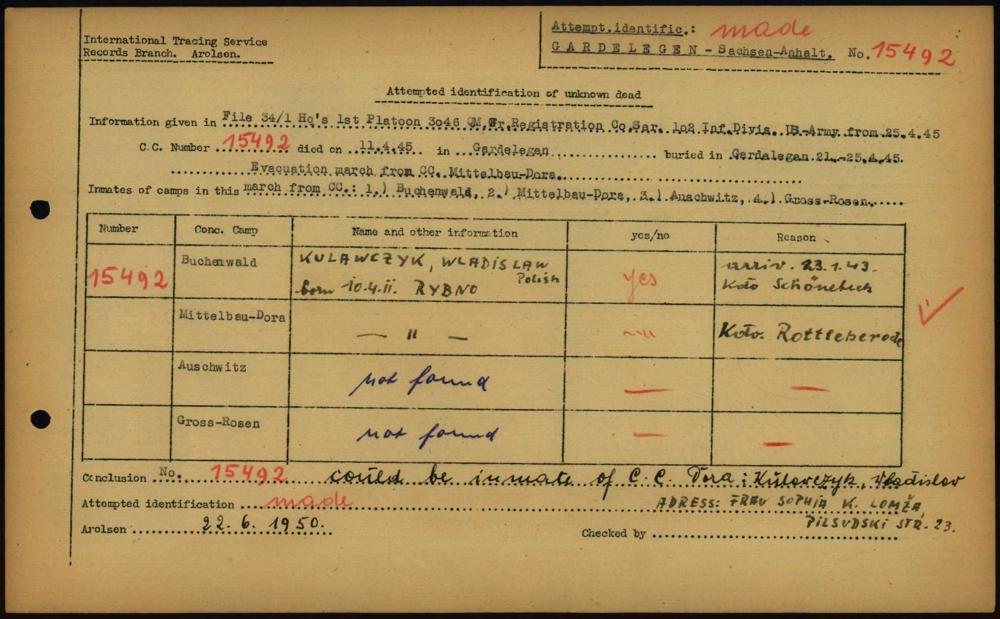 International Tracing Service
Records Branch. Arolsen.
Attempt.identific.: made
GARDELEGEN - Sachsen-Anhalt. No. 15492
Attempted identification of unknown dead
Information given in File 34/1 Hq's 1st Platoon 3046 QM.Gr.Registration Co.Sar. 102 Inf.Divis. US-Army from 25.4.45
C.C. Number 15492 died on 11.4.45 in Gardelegen buried in Gardelegen 21.-25.4.45.
Evacuation march from CC. Mittelbau-Dora.
Inmates of camps in this march from CC.: 1.) Buchenwald, 2.) Mittelbau-Dora, 3.) Auschwitz, 4.) Gross-Rosen.
Number Conc. Camp Name and other information yes/no Reason
15492 Buchenwald KULAWCZYK, WLADISLAW Polish born 10.4.11. RYBNO yes arriv. 23.1.43. Kdo Schönebeck
Mittelbau-Dora — " — —"— Kdo. Rottleberode
Auschwitz not found — —
Gross-Rosen not found — —
Conclusion No. 15492 could be inmate of C.C. Dora: Kulawczyk, Wladislav
Attempted identification made ADRESS: FRAU SOPHIA K. LOMŽA,
PILSUDSKI STR. 23.
Arolsen 22.6.1950. Checked by